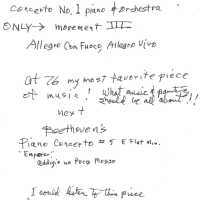 Concerto No. 1 piano & orchestra
ONLY → movement III
Allegro Con Fuoco, Allegro Vivo
At 76 my most favorite piece
of music! What music & 
should be all about!!!
next
Beethoven's
Piano Concerto # 5 E Flat
"Emperor"
Adagio un poco Mosso
I could listen to this piece